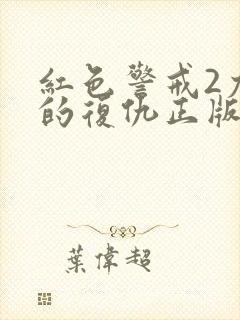 紅色警戒2
的復仇正版
葉偉超